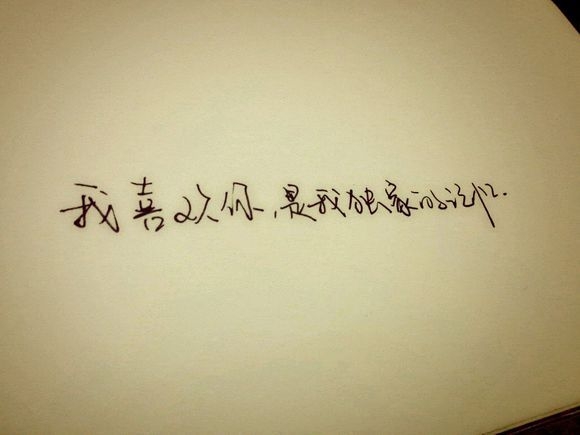 我喜欢你,是我独家的记忆.